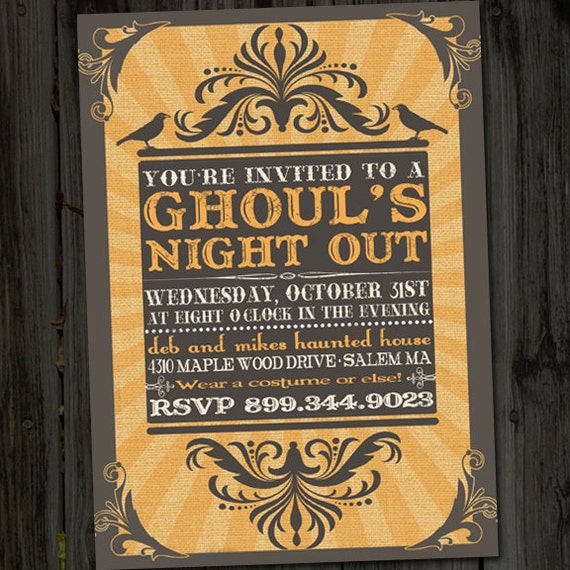 YOU'RE INVITED TO A
GHOUL'S
NIGHT OUT
WEDNESDAY, OCTOBER 31ST
AT EIGHT O'CLOCK IN THE EVENING
deb and mikes haunted house
4310 MAPLE WOOD DRIVE · SALEM MA
Wear a costume or else!
RSVP 899.344.9023